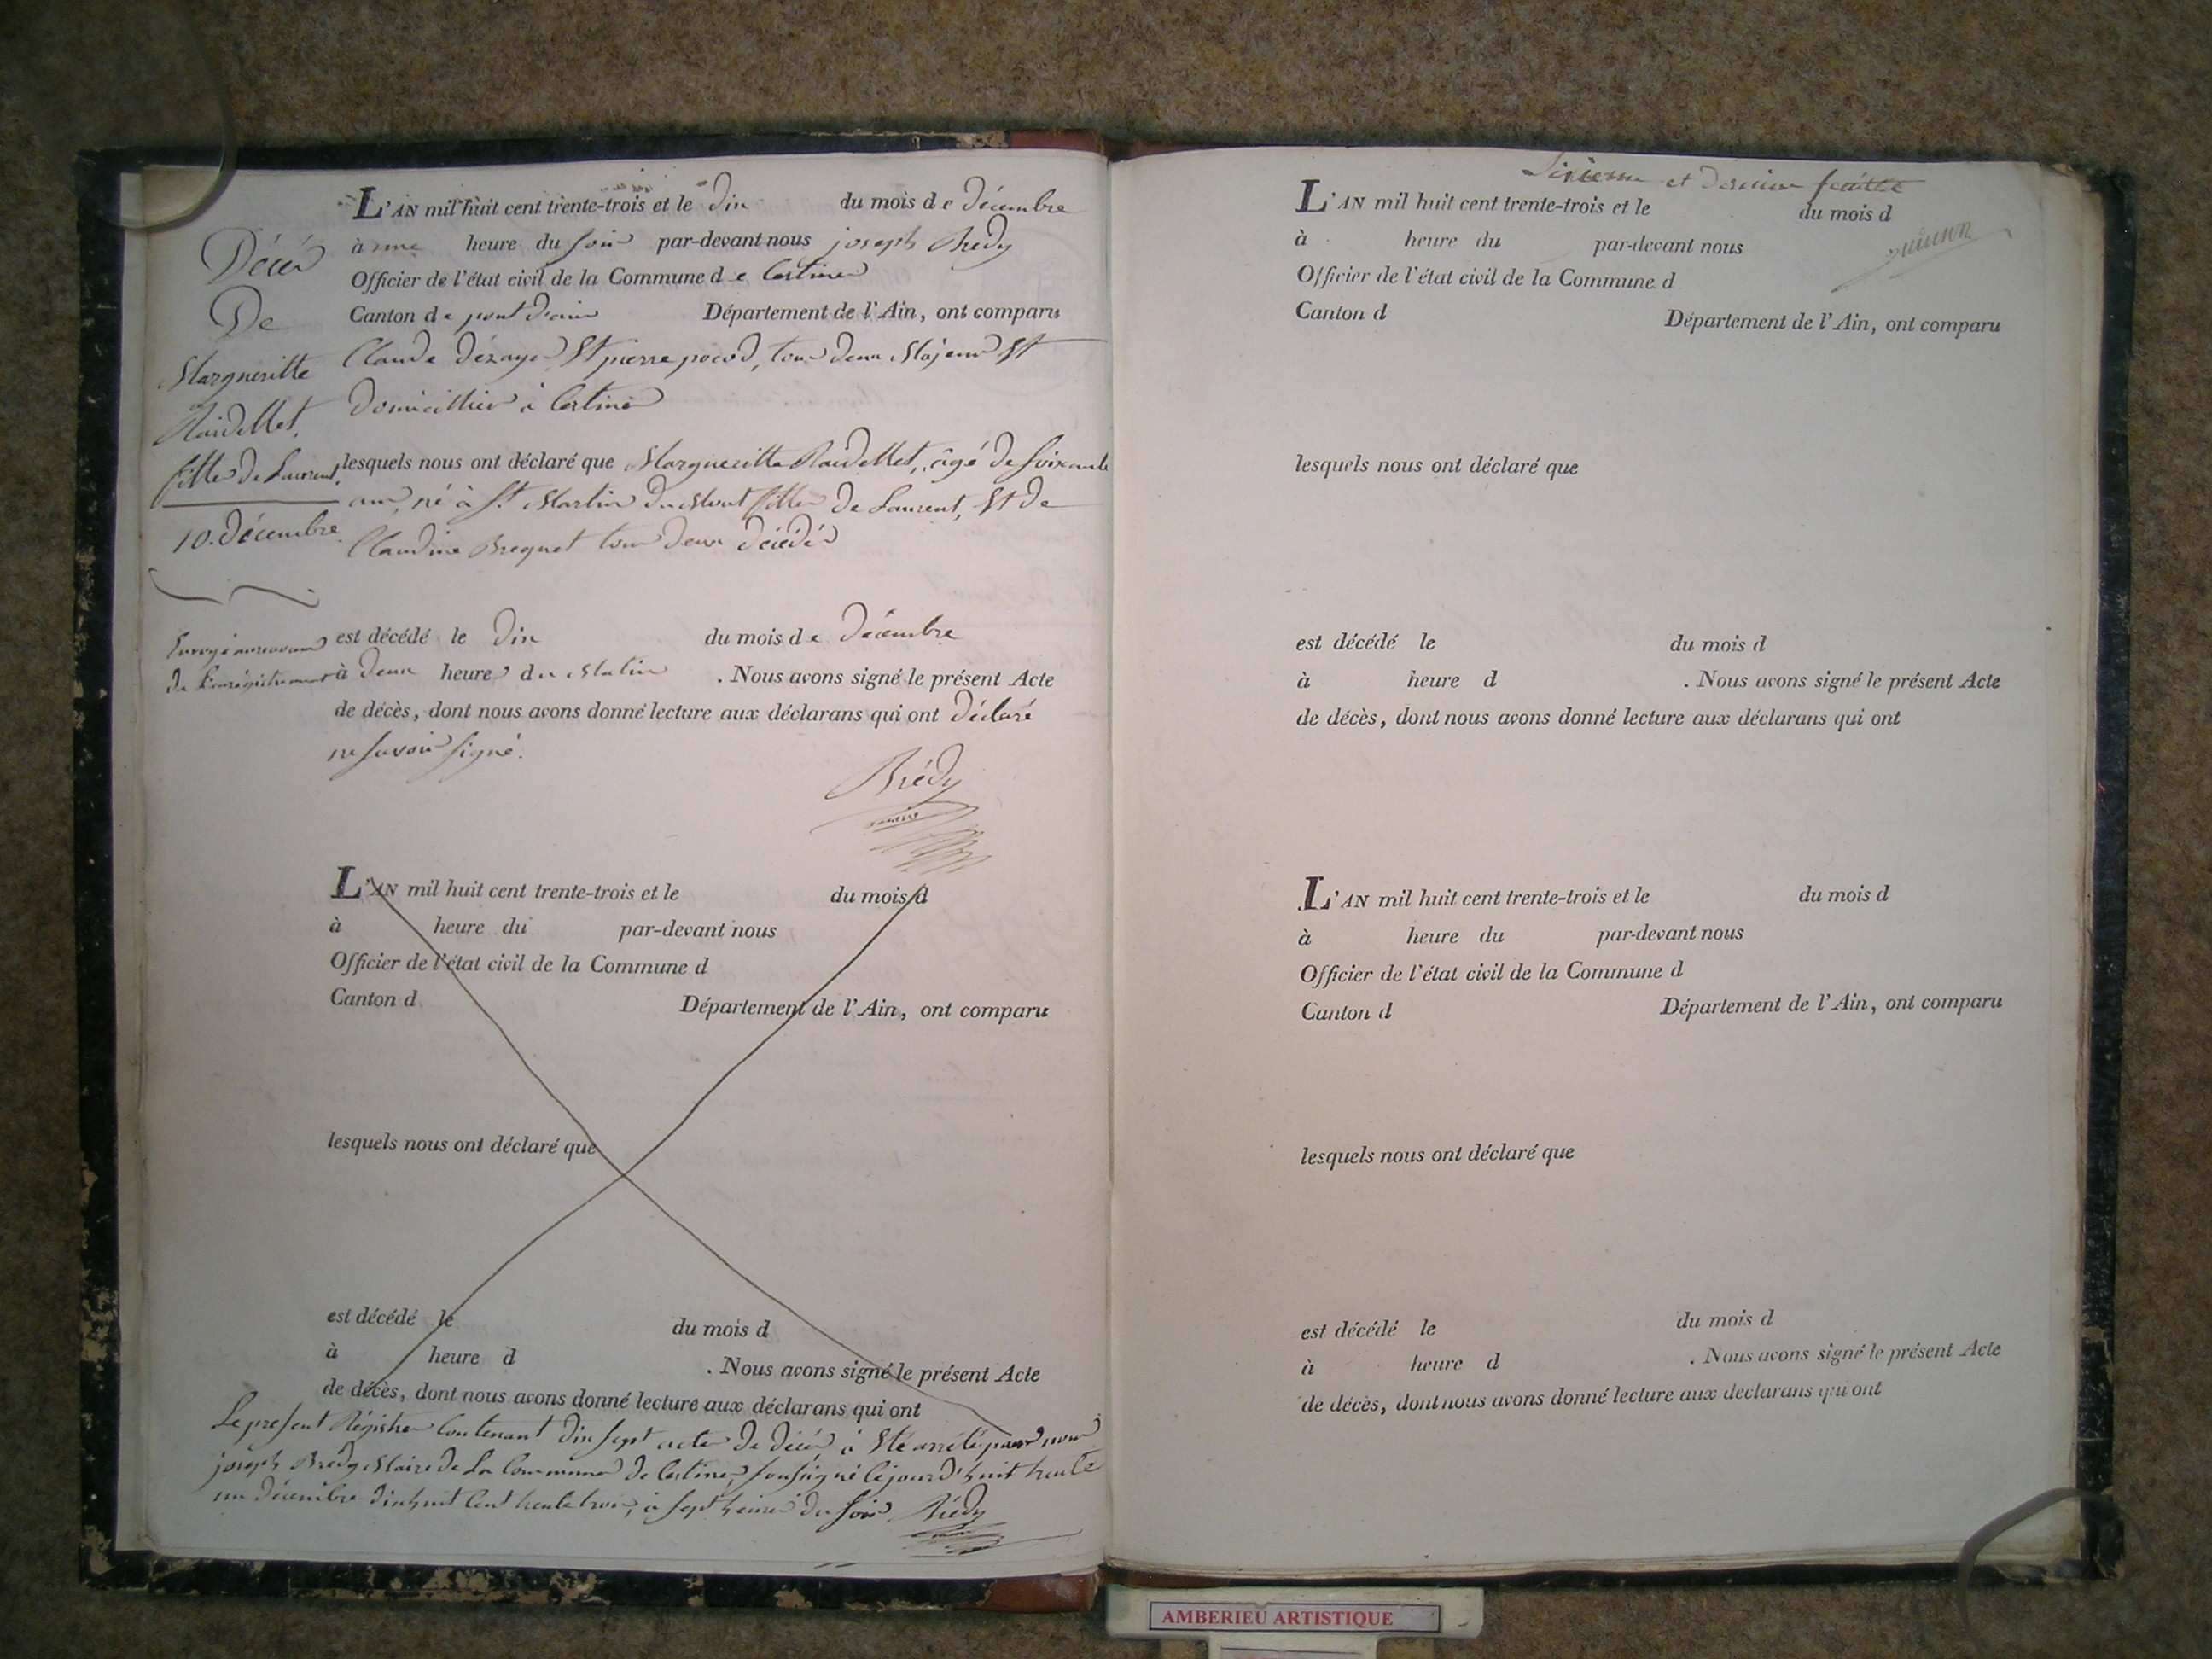 L'AN mil huit cent trente-trois et le dix du mois de décembre
à une heure du soir par-devant nous joseph Brédy
Officier de l'état civil de la Commune de Certines
Canton de pont d'ain Département de l'Ain, ont comparu
Claude dézayes Et pierre pocod, tous deux Majeurs Et
domicilliés à Certines
lesquels nous ont déclaré que Margueritte Raidellet, âgé de soixante
ans, né à St. Martin du Mont fille de Laurent, Et de
Claudine Breguet tous deux décédés
est décédé le dix du mois de décembre
à deux heures du Matin . Nous avons signé le présent Acte
de décès, dont nous avons donné lecture aux déclarans qui ont déclaré
ne savoir signé.
Brédy
Décès
De
Margueritte
Raidellet,
fille de Laurent.
10. décembre.
L'AN mil huit cent trente-trois et le du mois d
à heure du par-devant nous
Officier de l'état civil de la Commune d
Canton d Département de l'Ain, ont comparu
lesquels nous ont déclaré que
est décédé le du mois d
à heure d . Nous avons signé le présent Acte
de décès, dont nous avons donné lecture aux déclarans qui ont
Le present Régistre Contenant dix sept actes de décès à Eté arrêté par nous
joseph Brédy Maire de La Commune de Certines, soussigné Cejourd'huit trente
un décembre dix huit Cent trente trois, à sept heures du soir Brédy
Sixieme et derniere feuille
L'AN mil huit cent trente-trois et le du mois d
à heure du par-devant nous
Officier de l'état civil de la Commune d
Canton d Département de l'Ain, ont comparu
lesquels nous ont déclaré que
est décédé le du mois d
à heure d . Nous avons signé le présent Acte
de décès, dont nous avons donné lecture aux déclarans qui ont
L'AN mil huit cent trente-trois et le du mois d
à heure du par-devant nous
Officier de l'état civil de la Commune d
Canton d Département de l'Ain, ont comparu
lesquels nous ont déclaré que
est décédé le du mois d
à heure d . Nous avons signé le présent Acte
de décès, dont nous avons donné lecture aux declarans qui ont
AMBERIEU ARTISTIQUE